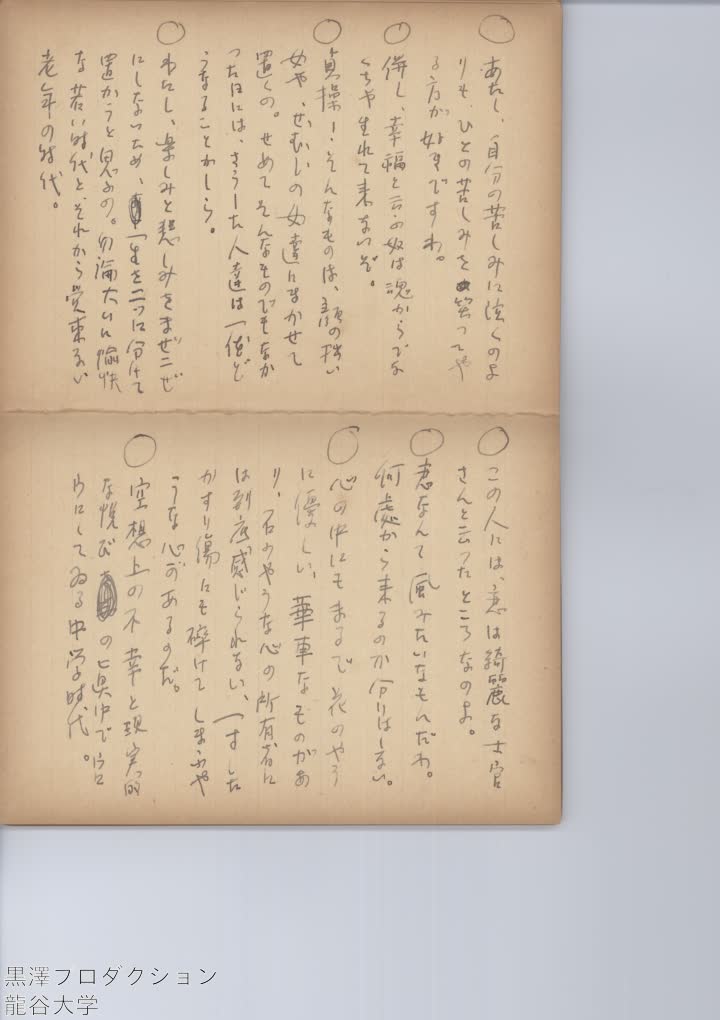 ○ あたし、自分の苦しみに泣くのよ
りも、ひとの苦しみを笑ってや
る方が好きですわ。
○ 併し、幸福と云ふ奴は魂からでな
くちや生れて来ないぞ。
○ 貞操!そんなものは、顔の醜い
女や、せむしの女達にまかせて
置くの。せめてそんなものでもなか
つた日には、さうした人達は一体ど
うなることかしら。
○ わたし、楽しみと悲しみをまぜこぜ
にしないため、一生を二つに分けて
置かうと思ふの。勿論大いに愉快
な若い時代とそれから覚束ない
老年の時代。
○ この人には、恋は綺麗な士官
さんと云つたところなのよ。
○ 恋なんて風みたいなもんだわ。
何處から来るのか分りはしない。
○ 心の中にもまるで花のやう
に優しい、華車なものがあ
り、石のやうな心の所有者に
は到底感じられない、一寸した
かすり傷にも砕けてしまふや
うな心があるのだ。
○ 空想上の不幸と現実的
な悦びの真中で
にしてゐる中学時代。
黒澤プロダクション
龍谷大学